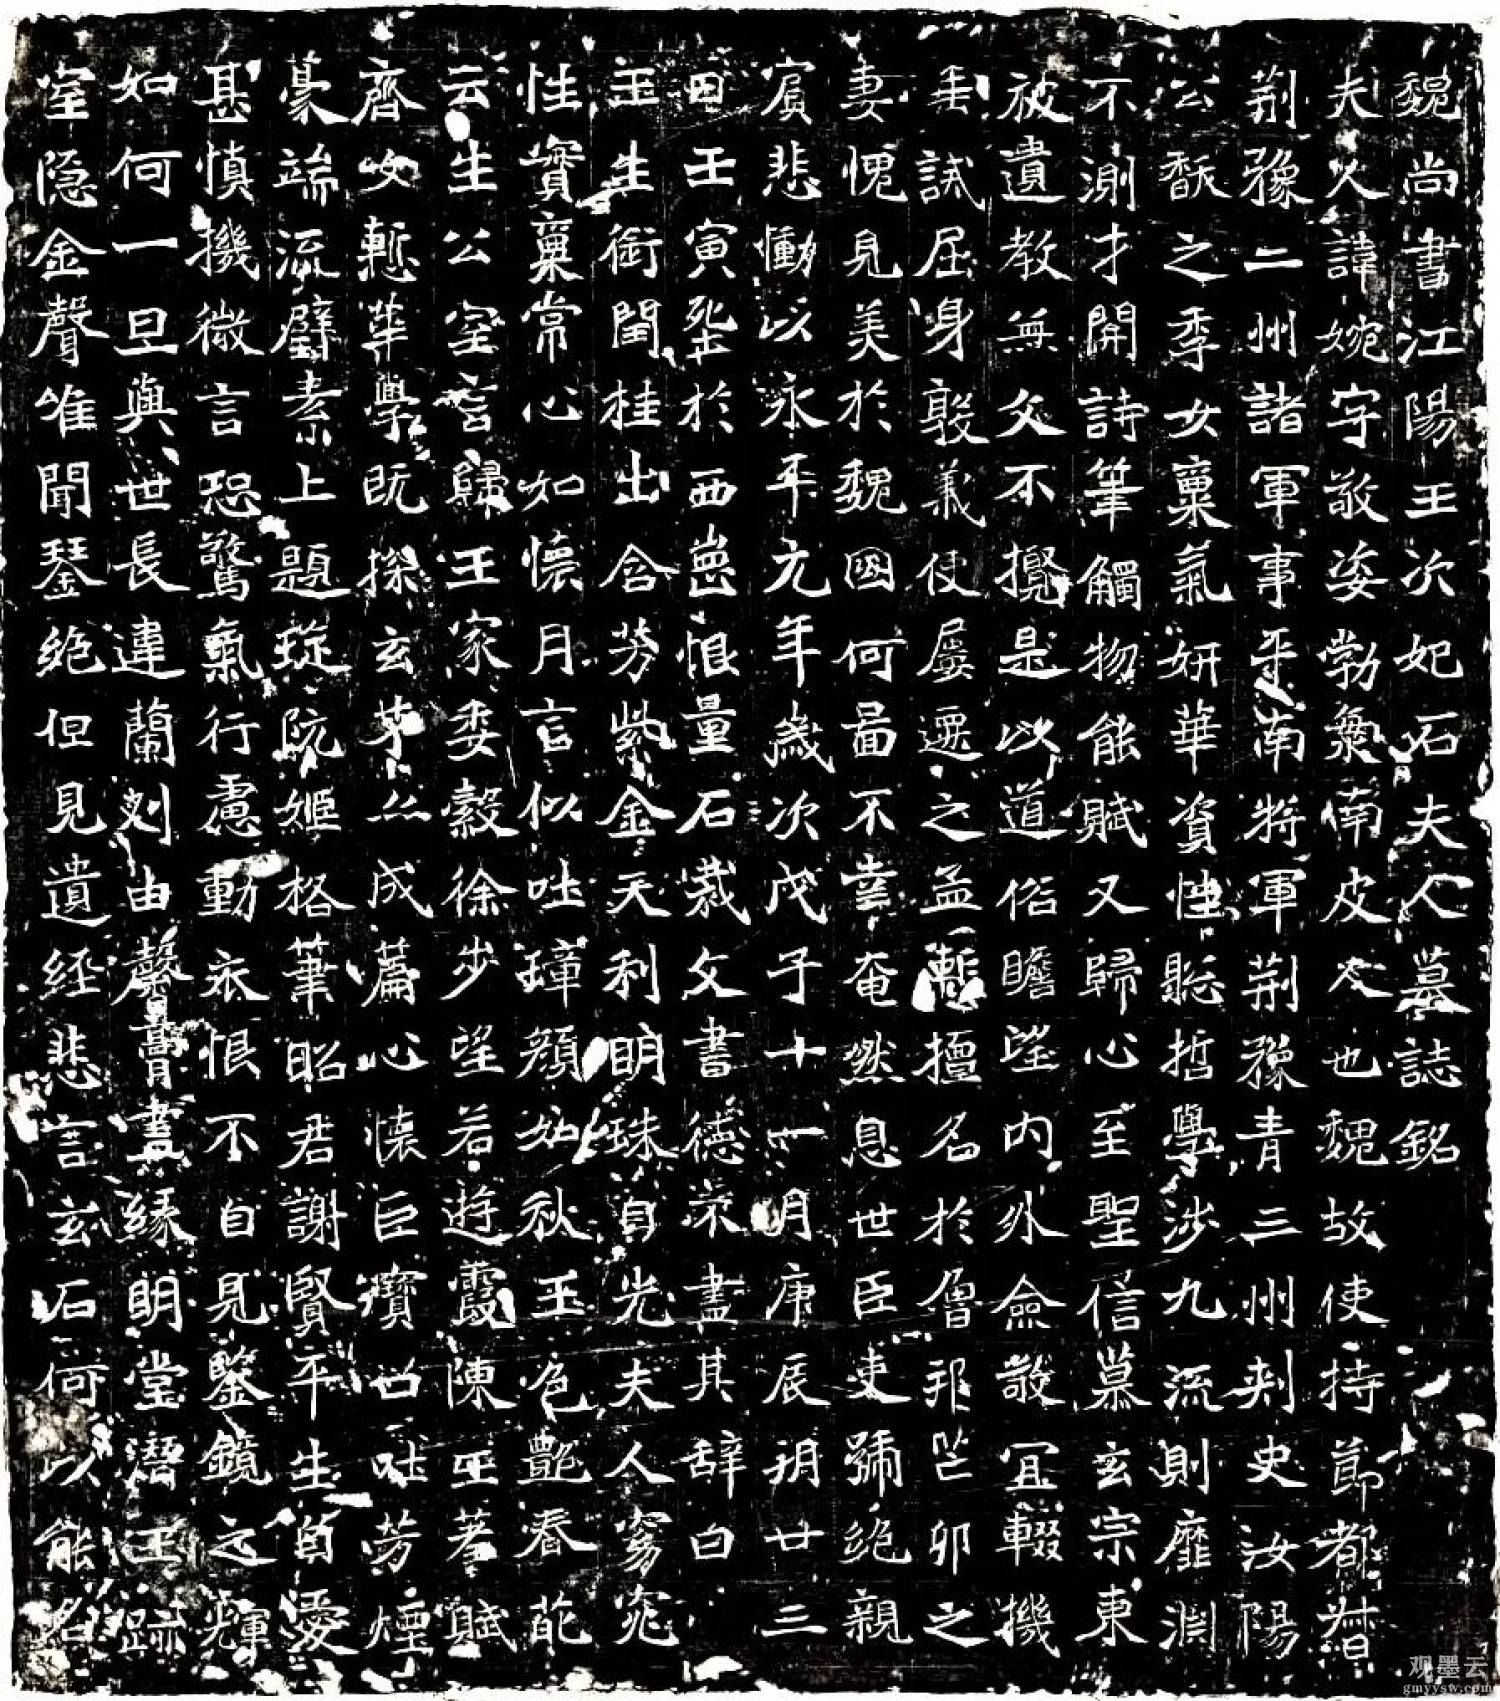 魏尚書江陽王次妃石夫人墓誌銘
夫人諱婉字敬姿勃海南皮人也魏故使持節都督
荊豫二州諸軍事平南將軍荊豫青三州刺史汝陽
公馛之季女稟氣妍華資性聡哲學涉九流則靡淵
不測才開詩筆觸物能賦又歸心至聖信慕玄宗東
被遺教無文不攬是以道俗瞻望內外僉敬宜輟機
無試屈身敦義使屢遷之孟慙擅名於魯邦芒卯之
妻愧見美於魏國何啚不幸奄然息世臣吏號絕親
賓悲慟以永平元年歲次戊子十一月庚辰朔廿三
日壬寅塟於西崗悢量石裁文書德不盡其辭曰
玉生銜閏桂出含芳紫金天利明珠自光夫人窈窕
性實稟常心如懷月言似吐璋顏如秋玉色艷春葩
云生公室言歸王家委縠徐步望若遊霞陳王羞賦
齊女慙華學既探玄才亦成篇心懷巨寶口吐芳煙
豪端流璧素上題琁阮姬格筆昭君謝賢平生自愛
甚慎機微言恐驚氣行慮動衣恨不自見鑒鏡之輝
如何一旦與世長違蘭剡由馨膏盡緣明堂潛玉跡
室隱金聲唯聞琴絕但見遺經悲言玄石何以能名
观墨云
gmyysw.com